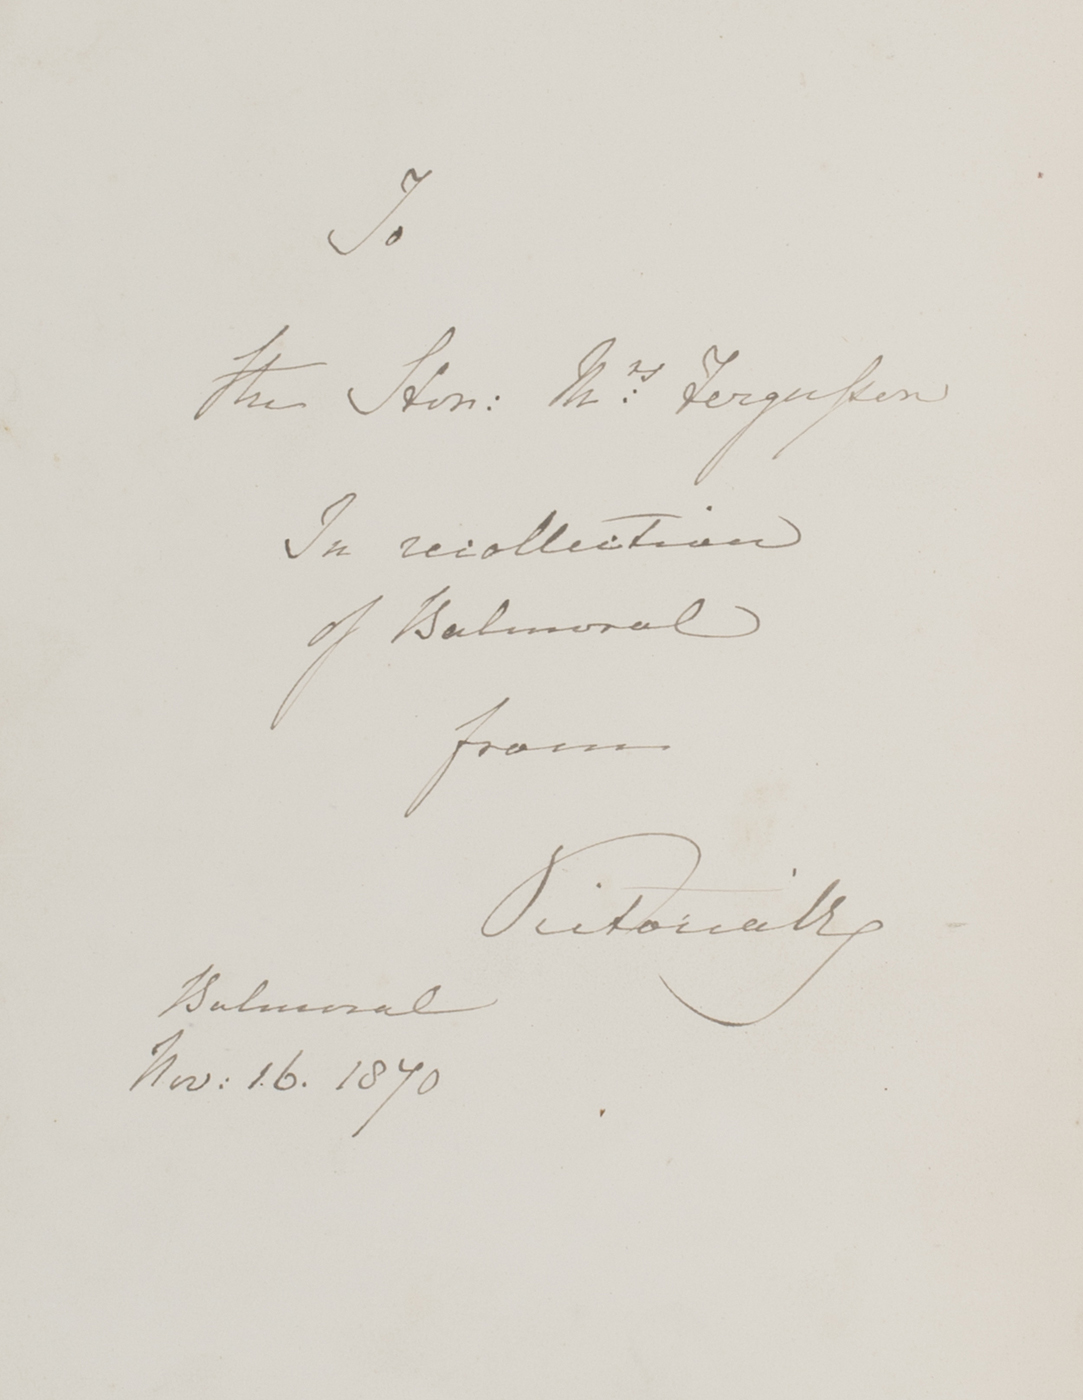 To
the Hon: Mrs: Fergusson
In recollection
of Balmoral
from
Victoria R
Balmoral
Nov: 16. 1870